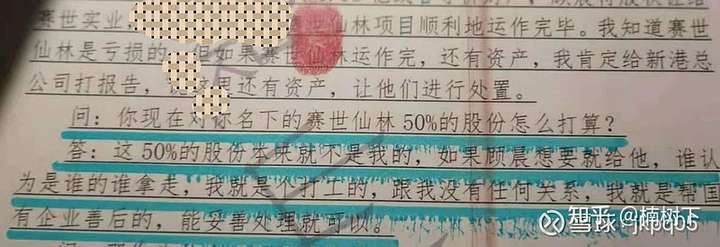 赛世实业，世仙林项目顺利地运作完毕。我知道赛世
仙林是亏损的，但如果赛世仙林运作完，还有资产，我肯定给新港总
公司打报告，这里还有资产，让他们进行处置。
问：你现在对你名下的赛世仙林50%的股份怎么打算？
答：这50%的股份本来就不是我的，如果顾晨想要就给他，谁认
为是谁的谁拿走，我就是个打工的，跟我没有任何关系，我就是帮国
有企业善后的，能妥善处理就可以。
知乎 @楠树下
雪球